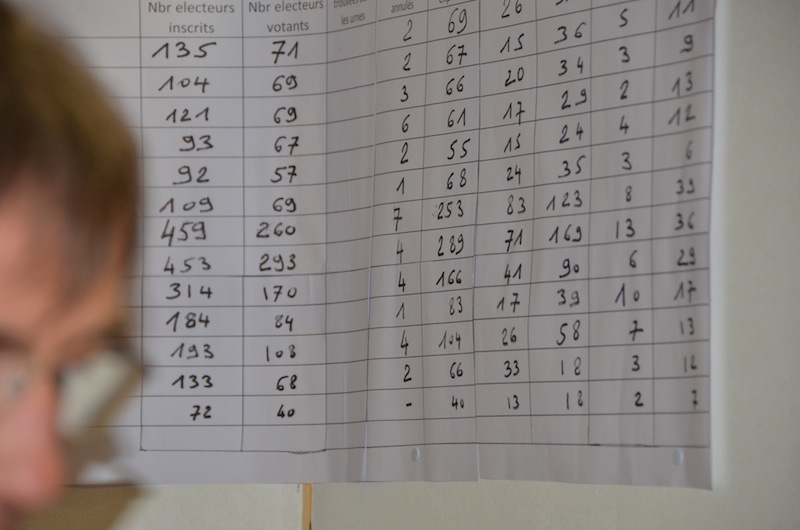 Nbr electeurs inscrits
Nbr electeurs votants
les urnes
annulés
135 71 2 69 26
104 69 2 67 15 36 5 11
121 69 3 66 20 34 3 9
93 67 6 61 17 29 2 13
92 57 2 55 15 24 4 12
109 69 1 68 24 35 3 6
459 260 7 253 83 123 8 39
453 293 4 289 71 169 13 36
314 170 4 166 41 90 6 29
184 84 1 83 17 39 10 17
193 108 4 104 26 58 7 13
133 68 2 66 33 18 3 12
72 40 - 40 13 18 2 7